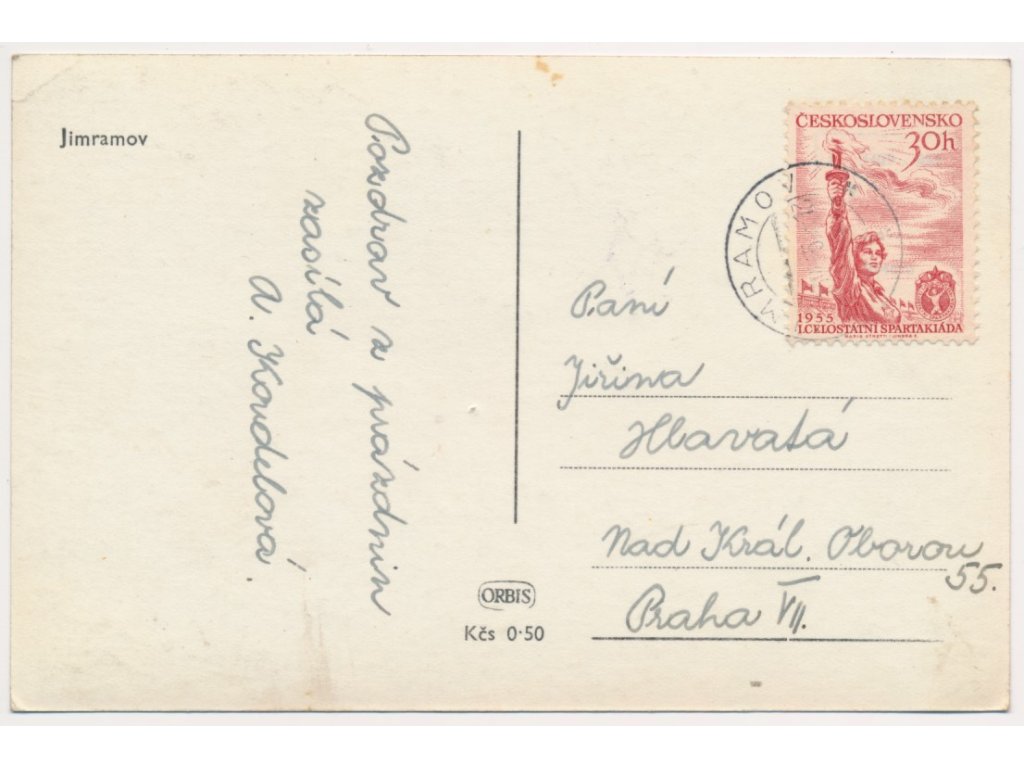 Jimramov
Pozdrav z prázdnin
zasílá
A. Koudelová.
ORBIS
Kčs 0·50
ČESKOSLOVENSKO
30h
1955
I. CELOSTÁTNÍ SPARTAKIÁDA
MRAMOV
Paní
Jiřina
Hlavatá
Nad Král. Oborou
55.
Praha VII.